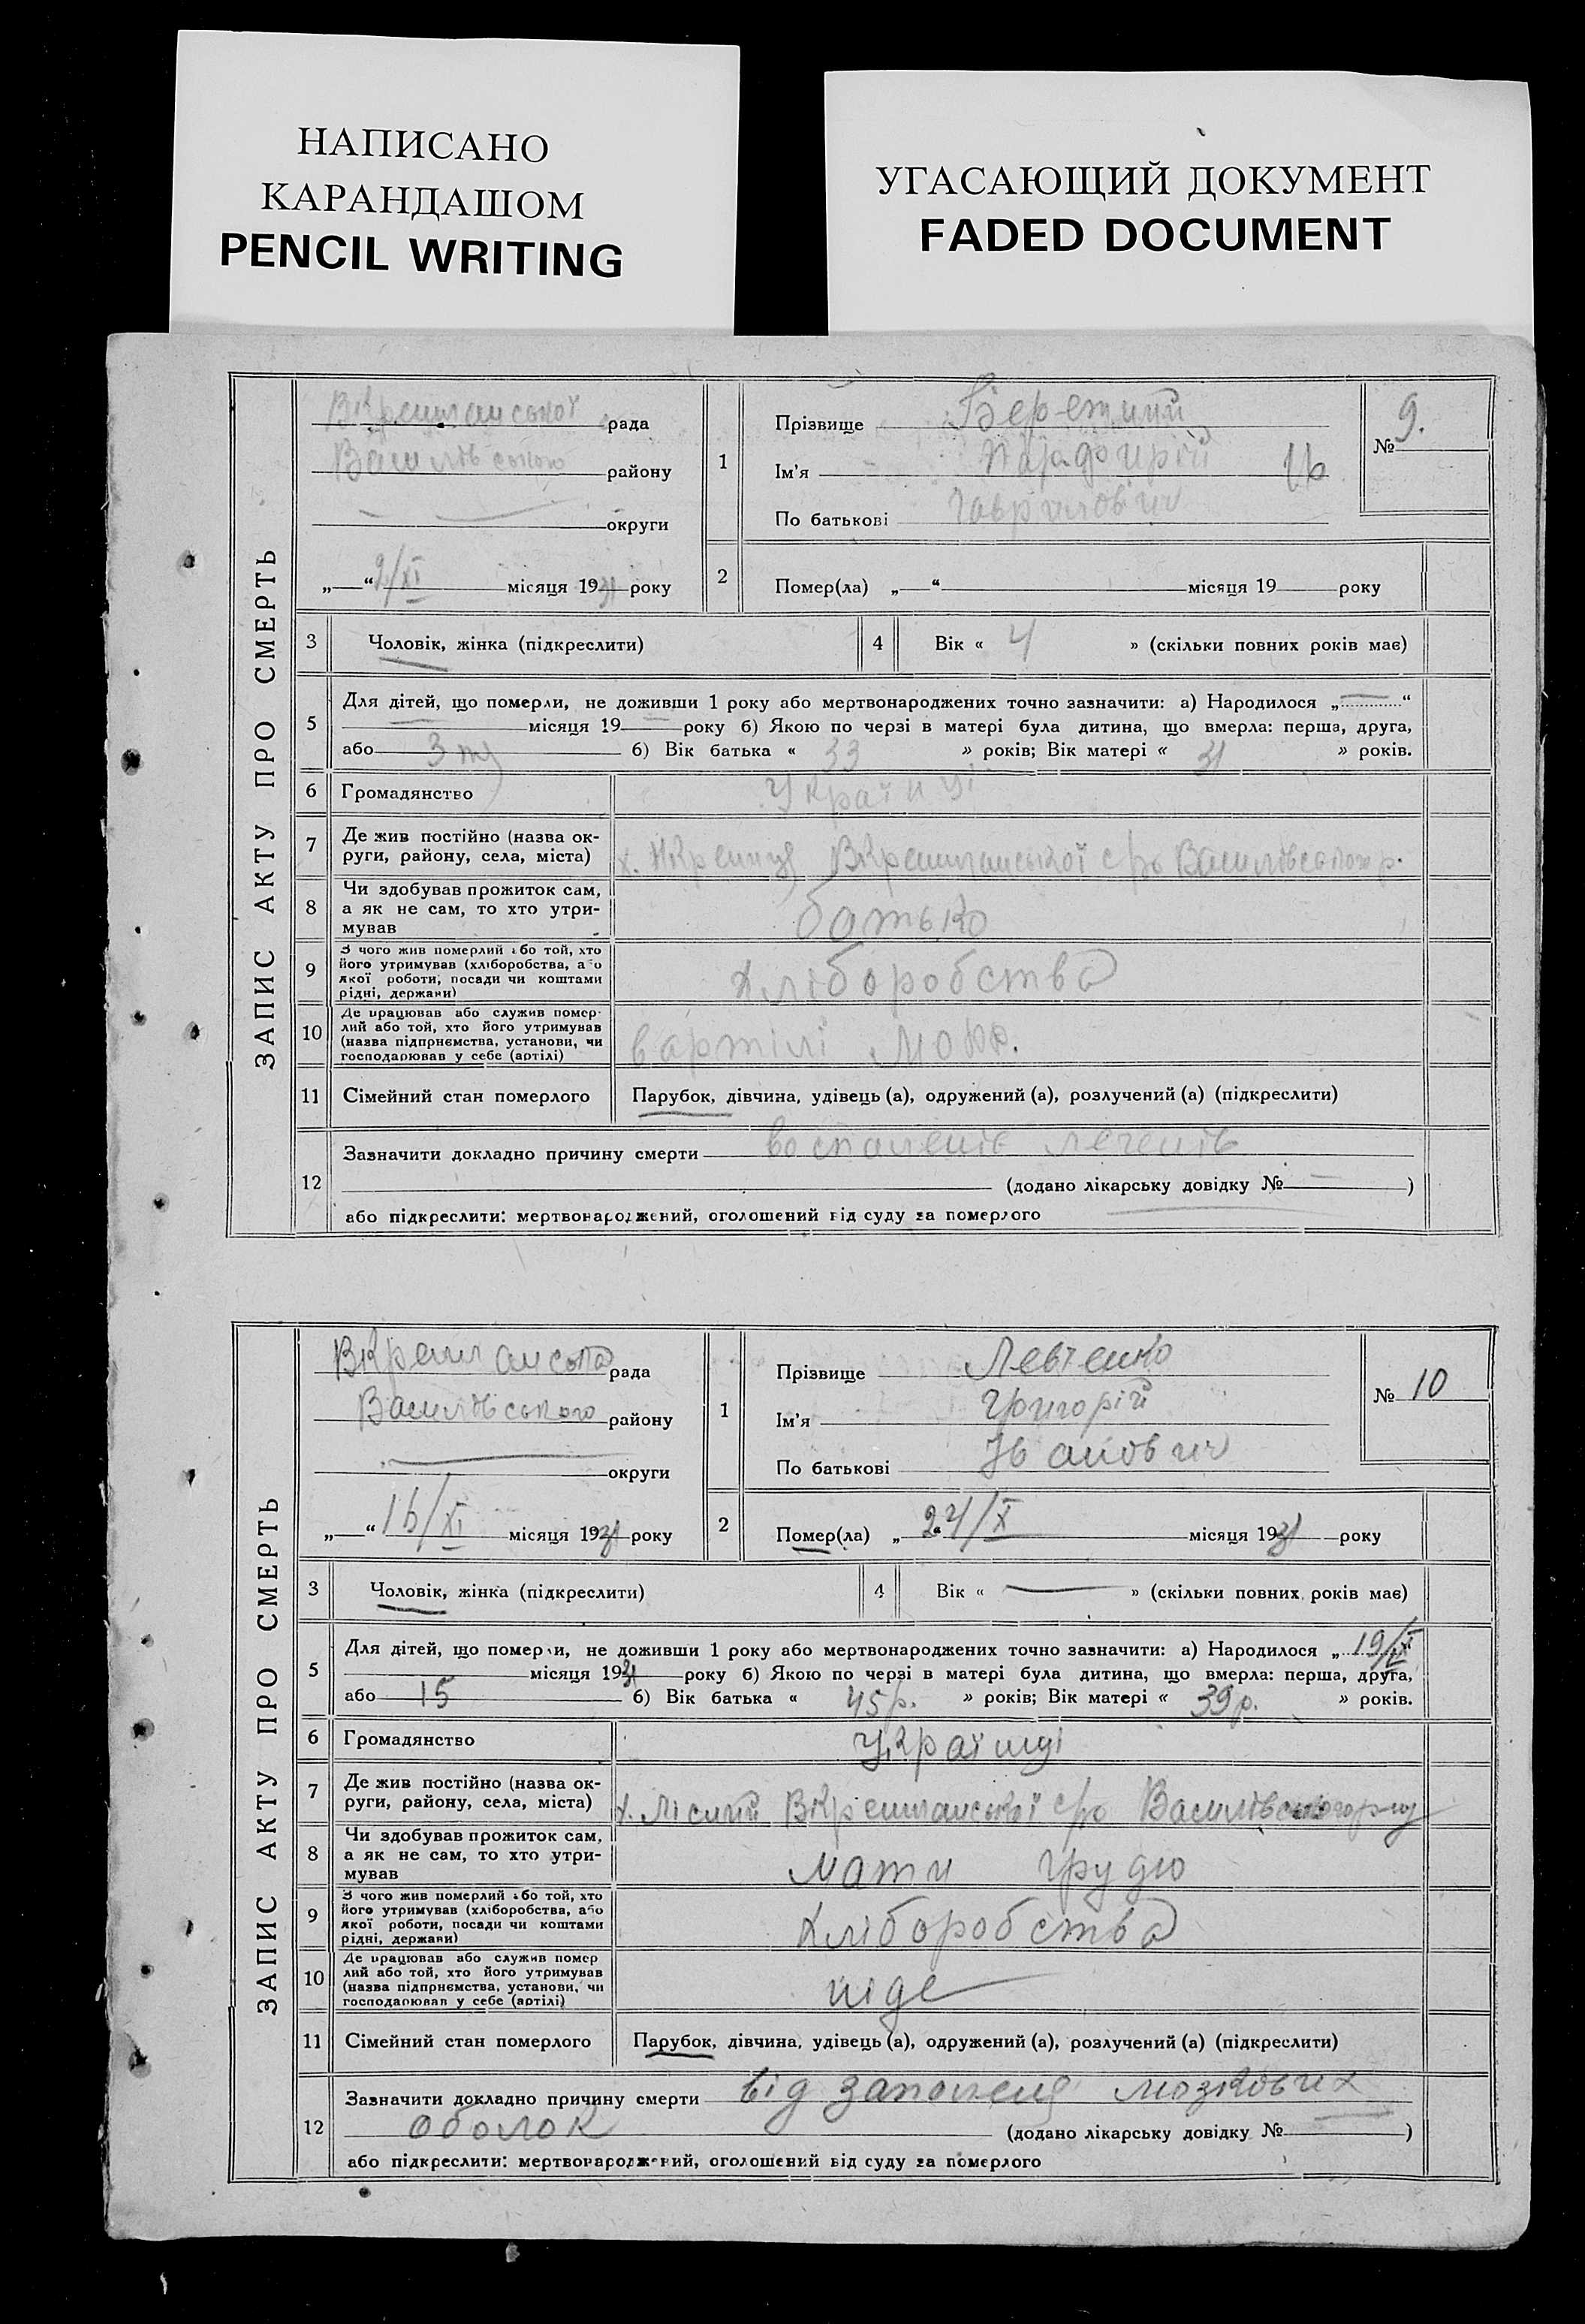 НАПИСАНО
КАРАНДАШОМ
PENCIL WRITING
УГАСАЮЩИЙ ДОКУМЕНТ
FADED DOCUMENT
ЗАПИС АКТУ ПРО СМЕРТЬ
ВКреничанської рада
Василівського району
округи
„ “ 2/XI місяця 1931 року
1
Прізвище Бережний
Ім'я
По батькові Гаврилович
№ 9.
2
Помер(ла) „ “ місяця 19 року
3 Чоловік, жінка (підкреслити)
4 Вік « 4 » (скільки повних років має)
5
Для дітей, що померли, не доживши 1 року або мертвонароджених точно зазначити: а) Народилося „ “
місяця 19 року б) Якою по черзі в матері була дитина, що вмерла: перша, друга,
або 3 б) Вік батька « 33 » років; Вік матері « 31 » років.
6 Громадянство Українці
7 Де жив постійно (назва ок-
руги, району, села, міста) х. с/р Василівського р.
8 Чи здобував прожиток сам,
а як не сам, то хто утри-
мував батько
9 З чого жив померлий або той, хто
його утримував (хліборобства, або
якої роботи, посади чи коштами
рідні, держави) Хліборобства
10 Де працював або служив помер-
лий або той, хто його утримував
(назва підприємства, установи, чи
господарював у себе (артілі) в артілі
11 Сімейний стан померлого Парубок, дівчина, удівець (а), одружений (а), розлучений (а) (підкреслити)
12
Зазначити докладно причину смерти воспаленіє
(додано лікарську довідку № )
або підкреслити: мертвонароджений, оголошений від суду за померлого
ЗАПИС АКТУ ПРО СМЕРТЬ
ВКреничанська рада
Василівського району
округи
„ “ 16/XI місяця 1931 року
1
Прізвище Левченко
Ім'я Григорій
По батькові Іванович
№ 10
2
Помер(ла) „ 24/X місяця 1931 року
3 Чоловік, жінка (підкреслити)
4 Вік « — » (скільки повних років має)
5
Для дітей, що померли, не доживши 1 року або мертвонароджених точно зазначити: а) Народилося „ 19/
місяця 1931 року б) Якою по черзі в матері була дитина, що вмерла: перша, друга,
або 15 б) Вік батька « 45р. » років; Вік матері « 39р. » років.
6 Громадянство Українці
7 Де жив постійно (назва ок-
руги, району, села, міста) х. Лісний ВКреничанської с/р Василівського р-ну
8 Чи здобував прожиток сам,
а як не сам, то хто утри-
мував мати грудю
9 З чого жив померлий або той, хто
його утримував (хліборобства, або
якої роботи, посади чи коштами
рідні, держави) Хліборобства
10 Де працював або служив помер
лий або той, хто його утримував
(назва підприємства, установи, чи
господарював у себе (артілі) ніде
11 Сімейний стан померлого Парубок, дівчина, удівець (а), одружений (а), розлучений (а) (підкреслити)
12
Зазначити докладно причину смерти від запаленя мозкових
оболок (додано лікарську довідку № )
або підкреслити: мертвонароджений, оголошений від суду за померлого